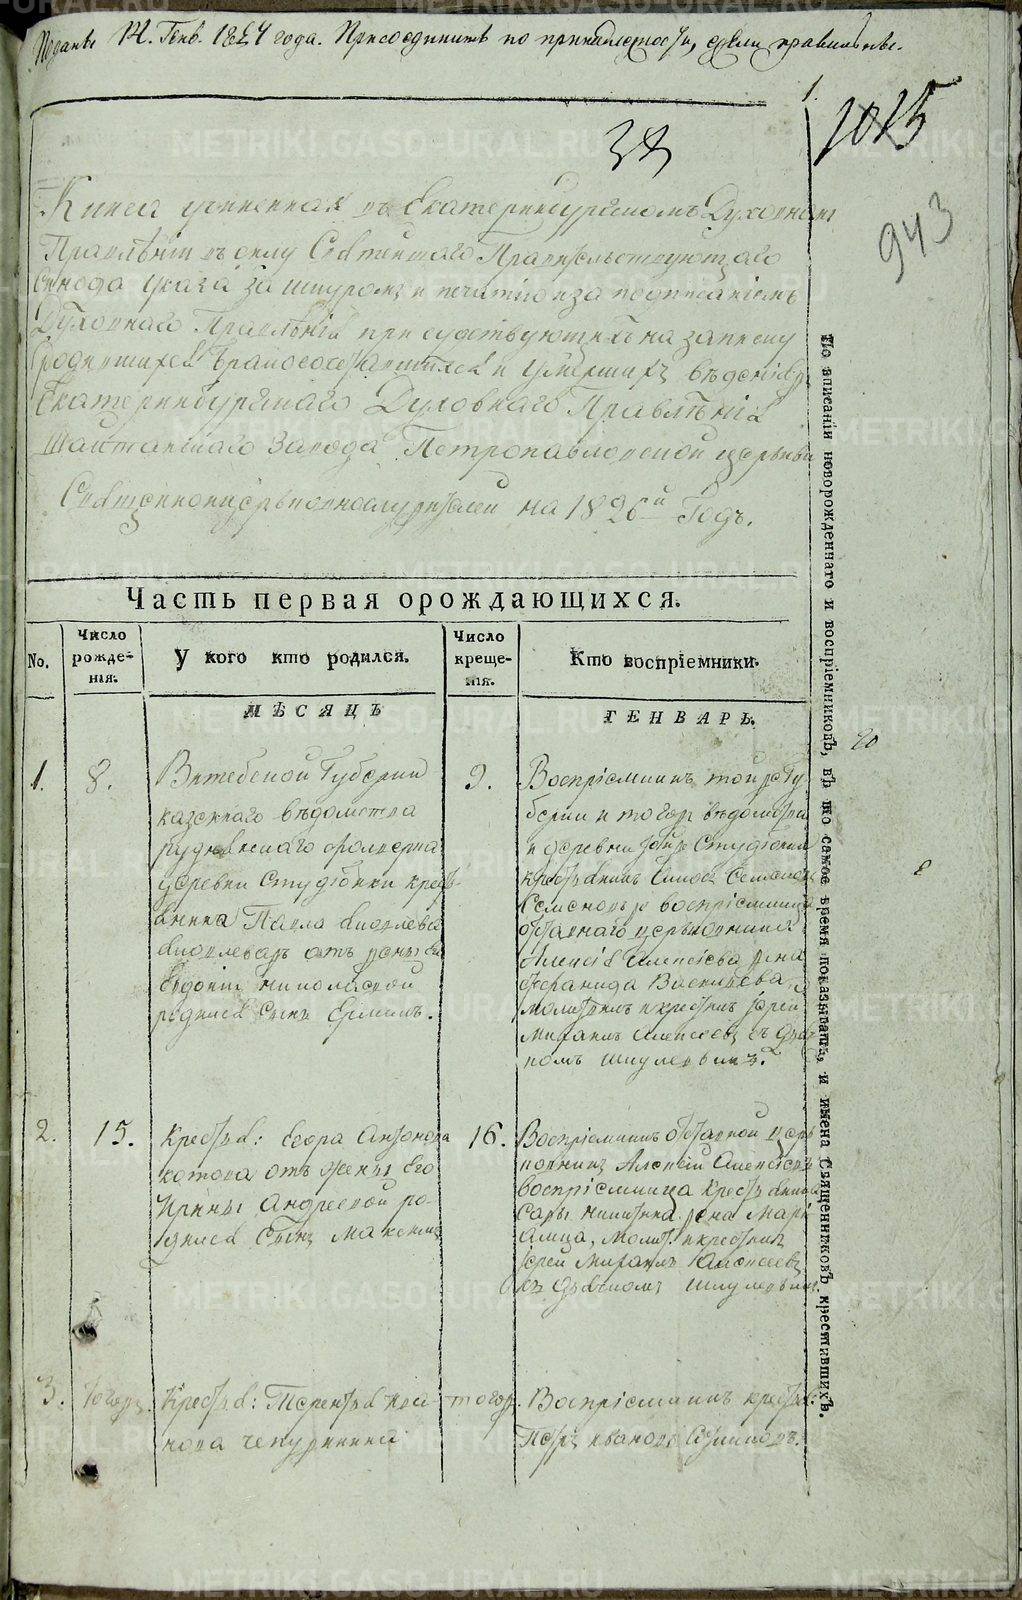 Поданъ 14. Генв. 1827 года. Присоединить по принадлежности,
1.
38
1015
943
Книга учиненная въ Екатеринбургскомъ Духовномъ
Правленіи въ силу Святейшаго Правительствующаго
Синода указа за шнуромъ и печатью и за подписаніемъ
Духовнаго Правленія присудствующихъ на записку
родившихся браком сочетавшихся и умершихъ ведения
Екатеринбургскаго Духовнаго Правленія
Шайтанскаго завода Петропавловской церькви
Священноицерьковнослужителей на 1826й Годъ.
Часть первая орождающихся.
No.
Число рожде-нія.
У кого кто родился.
Число креще-нія.
Кто воспріемники.
МѢСЯЦЪ
ГЕНВАРЬ.
1.
8.
Витебской Губернии
казеннаго ведомства
деревни Студіонки кресть-
янина Павла Яковлева
Яковлева отъ жены его
Евдокіи Николаевой
родился Сынъ Ермилъ.
9.
Воспріемникъ той же Гу
берніи и того ж ведомства
и деревни тойже Студіонки
крестьянинъ Семенов
Семеновъ воспріемница
отставнаго церьковника
Алексея Алексеева жена
Васильева,
молитвилъ и крестилъ Іерей
Михаилъ Алексеевъ съ Дьяч
комъ Шмулевымъ.
2.
15.
Крестья: Егора Антонова
Котова отъ жены Его
Ирины Андреевой ро-
дился Сынъ Максимъ
16.
Воспріемникъ отставной церь
ковникъ Алексей Алексеевъ
воспріемница крестьянина
Савы Никитина жена Мари
молит. и крестилъ
Іерей Михаилъ Алексеевъ
съ Дьячкомъ Шмулевымъ.
3.
тогож.
Крестья: Терентья
нова Чепуркина
тогож.
Воспріемникъ крестья:
Петръ Ивановъ
По вписаніи новорожденнаго и воспріемниковъ, въ то самое время показывать, и имена Священниковъ крестившихъ.
20